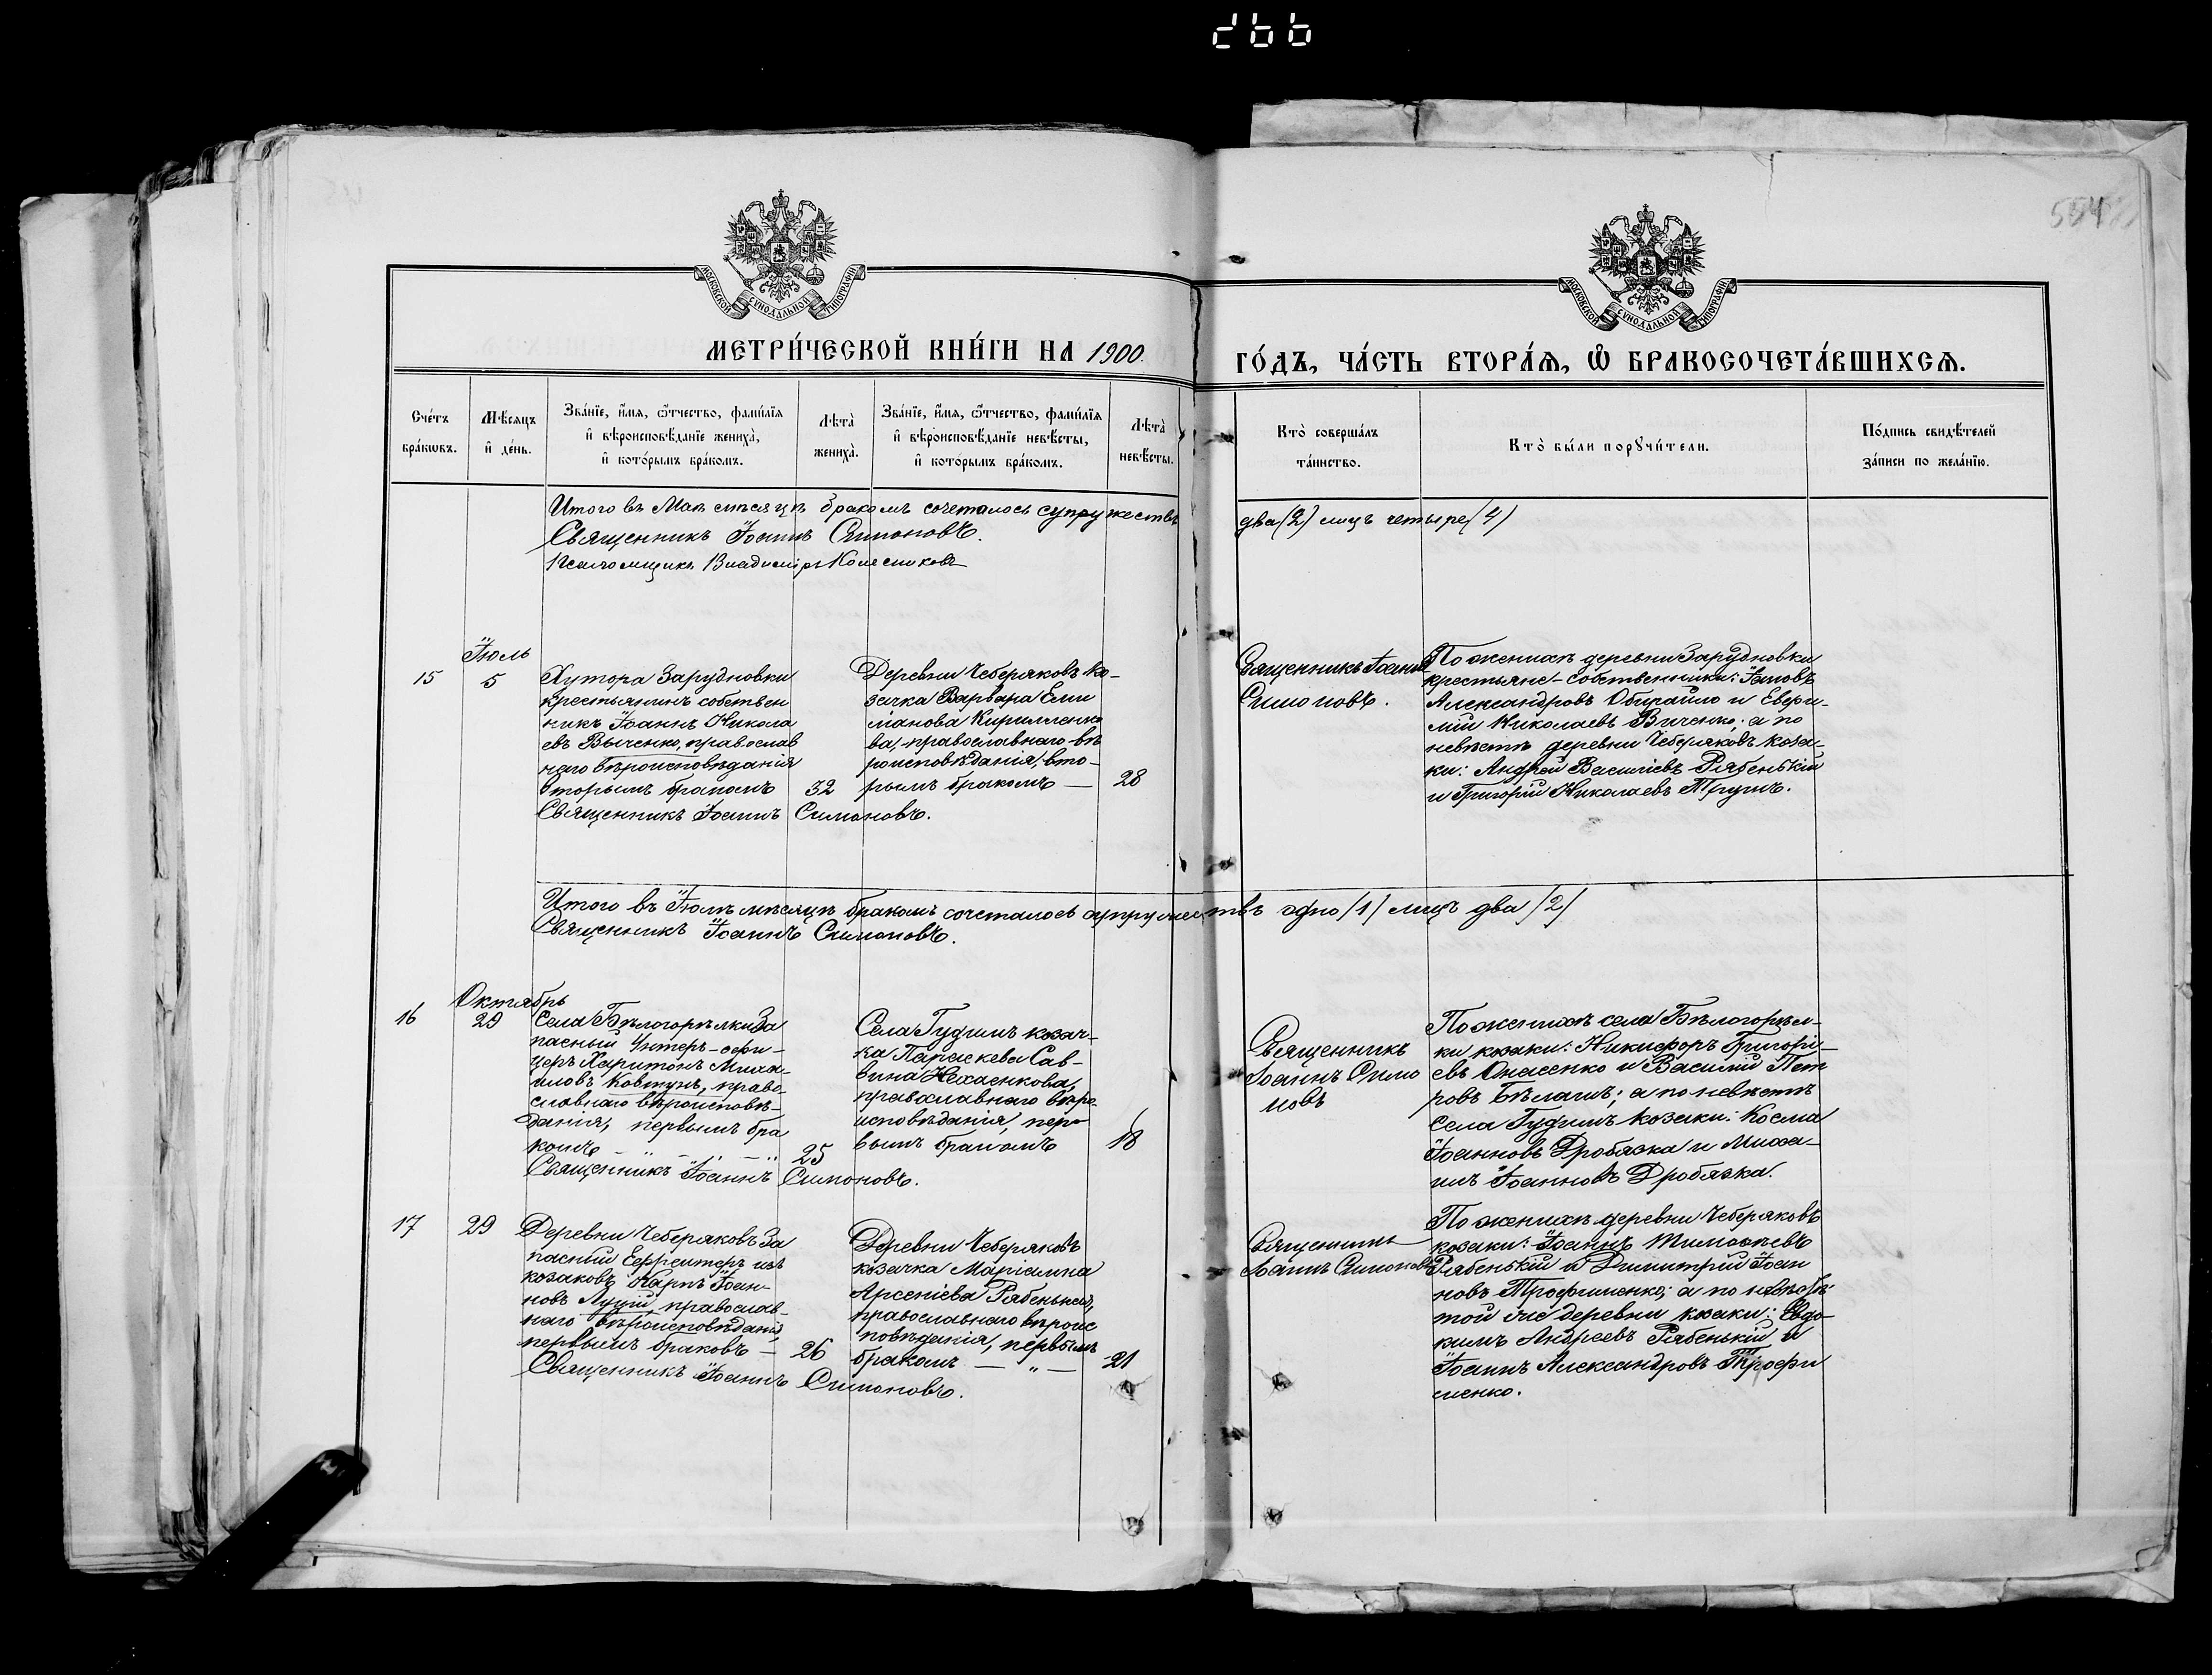 554
МОСКОВСКОЙ СѴНОДАЛЬНОЙ ТИПОГРАФІИ
МОСКОВСКОЙ СѴНОДАЛЬНОЙ ТИПОГРАФІИ
МЕТРИ́ЧЕСКОЙ КНИ́ГИ НА 1900.
ГО́ДЪ, ЧА́СТЬ ВТОРА́Ѧ, Ѽ БРАКОСОЧЕТА́ВШИХСѦ.
Сче́тъ
бра́кѡвъ.
Мѣ́сяцъ
и҆ де́нь.
Зва́нїе, и҆́мѧ, ѻ҆́тчество, фами́лїѧ
и҆ вѣроисповѣ́данїе жениха̀,
и҆ кото́рымъ бра́комъ.
Лѣта̀
жениха̀.
Зва́нїе, и҆́мѧ, ѻ҆́тчество, фами́лїѧ
и҆ вѣроисповѣ́данїе невѣ́сты,
и҆ кото́рымъ бра́комъ.
Лѣта̀
невѣ́сты.
Кто̀ соверша́лъ
та́инство.
Кто̀ бы́ли порꙋчи́тели.
По́дпись свидѣ́телей
за́писи по жела́нїю.
Итого въ Маѣ мѣсяцѣ бракомъ сочеталось супружествъ
два (2) лицъ четыре (4)
Священникъ Іоаннъ Симоновъ.
Псаломщикъ Владиміръ Колесниковъ
Іюль
15
5
Хутора Зарудновки
крестьянинъ собствен
никъ Іоаннъ Никола
евъ Выченко, православ
наго вѣроисповѣданія
вторымъ бракомъ
32
Священникъ Іоаннъ Симоновъ.
Деревни Чеберяковъ ка-
зачка Варвара Еми
ліанова Кирилленко
ва, православнаго вѣ
роисповѣданія, вто-
рымъ бракомъ —
28
Священникъ Іоаннъ
Симоновъ.
По женихѣ деревни Зарудновки
крестьяне-собственники: Іаковъ
Александровъ Обирайло и Евфи-
мій Николаевъ Виченко; а по
невѣстѣ деревни Чеберяковъ коза-
ки: Андрей Василіевъ Рябенькій
и Григорій Николаевъ Трушъ.
Итого въ Іюлѣ мѣсяцѣ бракомъ сочеталось супружествъ одно (1) лицъ два (2)
Священникъ Іоаннъ Симоновъ.
Октябрь
16
29
Села Бѣлогорѣлки За
пасный Унтеръ-офи-
церъ Харитонъ Миха-
иловъ Ковтунъ, право-
славнаго вѣроисповѣ-
данія, первымъ бра
комъ
25
Священникъ Іоаннъ Симоновъ.
Села Гудимъ козач-
ка Параскева Сав-
вина Нехаенкова,
православнаго вѣро-
исповѣданія, пер-
вымъ бракомъ
18
Священникъ
Іоаннъ Симо
новъ
По женихѣ села Бѣлогорѣл-
ки козаки: Никифоръ Григорі-
евъ Онасенко и Василій Пет
ровъ Бѣлашъ; а по невѣстѣ
села Гудимъ козаки: Косма
Іоанновъ Дробязка и Миха-
илъ Іоанновъ Дробязка.
17
29
Деревни Чеберяковъ За
пасный Ефрейторъ изъ
козаковъ Карпъ Іоан-
новъ Луцій, православ-
наго вѣроисповѣданія,
первымъ браковъ —
26
Священникъ Іоаннъ Симоновъ.
Деревни Чеберяковъ
козачка Маріамна
Арсеніева Рябенькая,
православнаго вѣроис
повѣданія, первымъ
бракомъ — " —
21
Священникъ
Іоаннъ Симоновъ
По женихѣ деревни Чеберяковъ
козаки: Іоаннъ Тимофѣевъ
Рябенькій и Димитрій Іоан
новъ Трофименко; а по невѣстѣ:
той же деревни козаки: Евдо-
кимъ Андреевъ Рябенькій и
Іоаннъ Александровъ Трофи
менко.